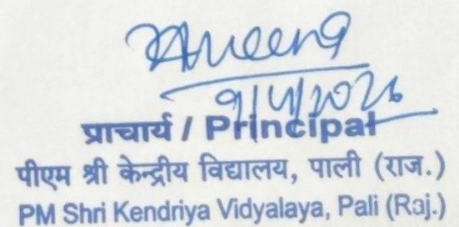 9/4/2026
प्राचार्य / Principal
पीएम श्री केन्द्रीय विद्यालय, पाली (राज.)
PM Shri Kendriya Vidyalaya, Pali (Raj.)